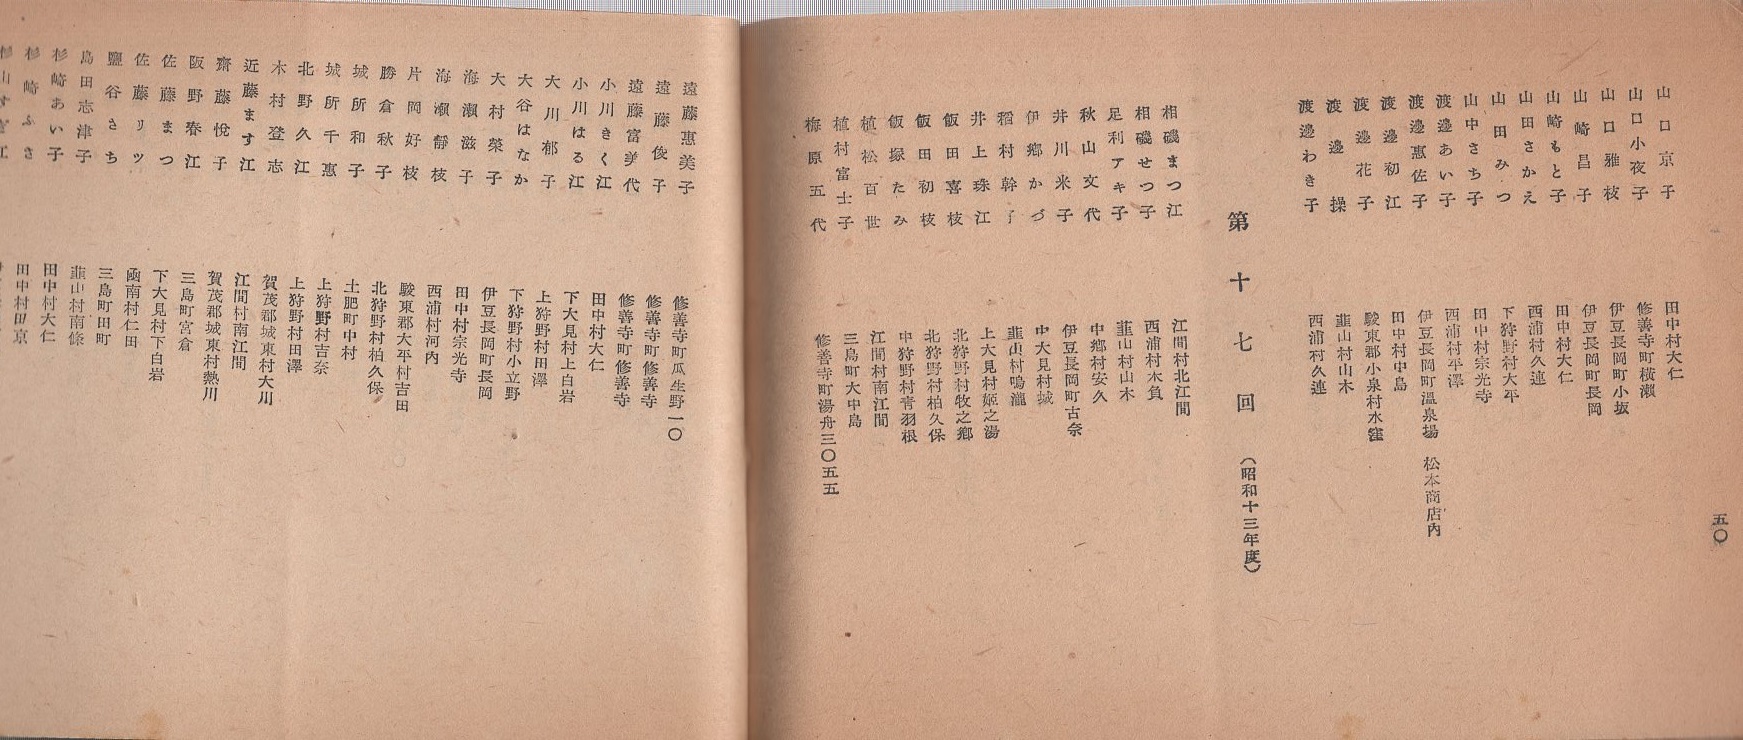 五〇
山口京子 田中村大仁
山口小夜子 修善寺町横瀬
山口雅枝 伊豆長岡町小坂
山崎昌子 伊豆長岡町長岡
山崎もと子 田中村大仁
山田さかえ 西浦村久連
山田みつ 下狩野村大平
山中さち子 田中村宗光寺
渡邊あい子 西浦村平澤
渡邊惠佐子 伊豆長岡町温泉場 松本商店内
渡邊初江 田中村中島
渡邊花子 駿東郡小泉村水窪
渡邊操 韮山村山木
渡邊わき子 西浦村久連
第十七回 (昭和十三年度)
相磯まつ江 江間村北江間
相磯せつ子 西浦村木負
足利アキ子 韮山村山木
秋山文代 中郷村安久
井川米子 伊豆長岡町古奈
伊郷かづ 中大見村城
稻村幹子 韮山村鳴瀧
井上珠江 上大見村姫之湯
飯田喜枝 北狩野村牧之郷
飯田初枝 北狩野村柏久保
飯塚たみ 中狩野村青羽根
植松百世 江間村南江間
植村富士子 三島町大中島
梅原五代 修善寺町湯舟三〇五五
遠藤惠美子 修善寺町瓜生野一〇
遠藤俊子 修善寺町修善寺
遠藤富美代 修善寺町修善寺
小川きく江 田中村大仁
小川はる江 下大見村上白岩
大川郁子 上狩野村田澤
大谷はなか 下狩野村小立野
大村榮子 伊豆長岡町長岡
海瀬滋子 田中村宗光寺
海瀬靜枝 西浦村河内
片岡好枝 駿東郡大平村吉田
勝倉秋子 北狩野村柏久保
城所和子 土肥町中村
城所千惠 上狩野村吉奈
北野久江 上狩野村田澤
木村登志 賀茂郡城東村大川
近藤ます江 江間村南江間
齋藤悅子 賀茂郡城東村熱川
阪野春江 三島町宮倉
佐藤まつ 下大見村下白岩
佐藤リツ 函南村仁田
鹽谷さち 三島町田町
島田志津子 韮山村南條
杉崎あい子 田中村大仁
杉崎ふさ 田中村田京